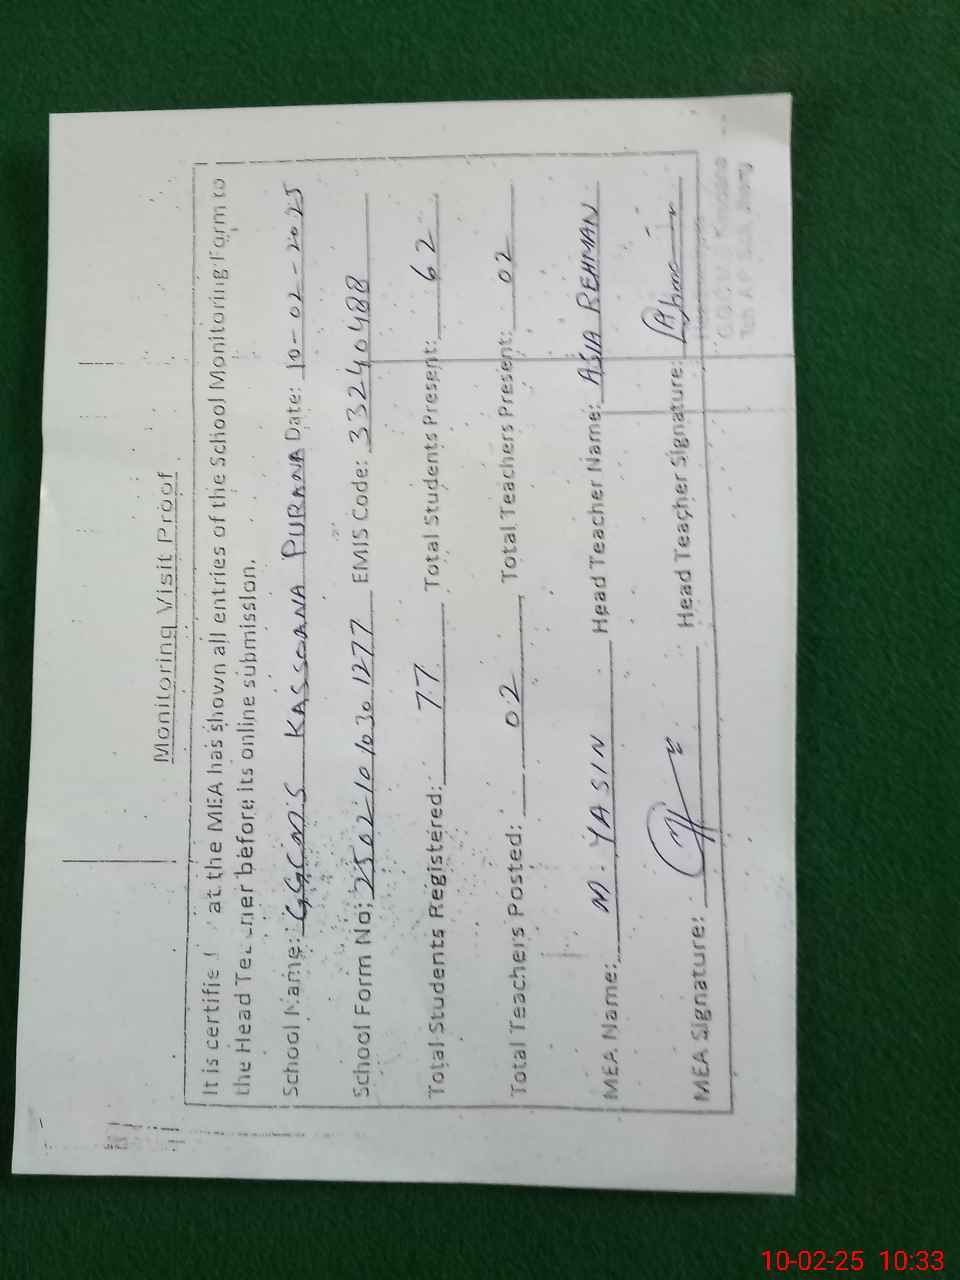 Monitoring Visit Proof
It is certifie at the MEA has shown all entries of the School Monitoring Form to
the Head Te ner before its online submission.
School Name: GGCMS KASSOANA PURANA Date: 10-02-2025
School Form No: 2502101030 1277 EMIS Code: 33240488
Total Students Registered: 77 Total Students Present: 62
Total Teachers Posted: 02 Total Teachers Present: 02
MEA Name: M. YASIN Head Teacher Name: ASIA REHMAN
MEA Signature: Head Teacher Signature:
10-02-25 10:33